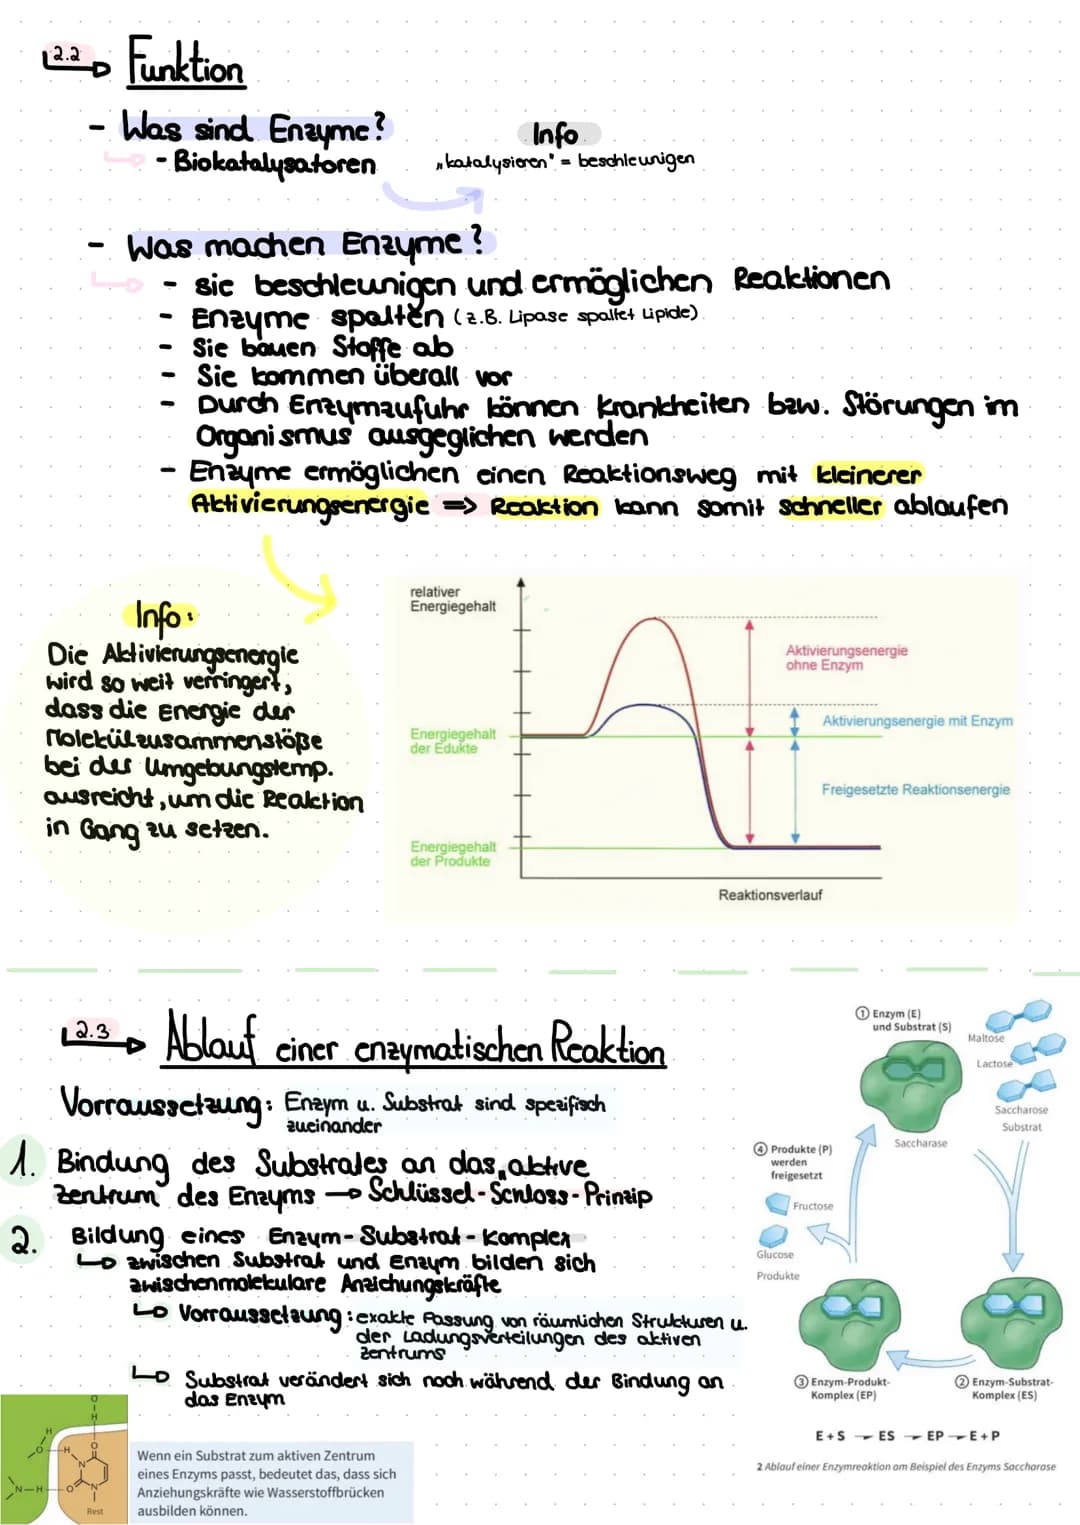 2.2 Funktion
- Was sind Enzyme?
- Biokatalysatoren
Info
„katalysieren" = beschleunigen
- Was machen Enzyme?
- sie beschleunigen und ermöglichen Reaktionen
- Enzyme spalten (z.B. Lipase spaltet Lipide)
- Sie bauen Stoffe ab
- Sie kommen überall vor
- Durch Enzymzufuhr können Krankheiten bzw. Störungen im
Organismus ausgeglichen werden
- Enzyme ermöglichen einen Reaktionsweg mit kleinerer
Aktivierungsenergie => Reaktion kann somit schneller ablaufen
Info:
Die Aktivierungsenergie
wird so weit verringert,
dass die Energie der
Molekülzusammenstöße
bei der Umgebungstemp.
ausreicht, um die Reaktion
in Gang zu setzen.
relativer
Energiegehalt
Aktivierungsenergie
ohne Enzym
Aktivierungsenergie mit Enzym
Energiegehalt
der Edukte
Freigesetzte Reaktionsenergie
Energiegehalt
der Produkte
Reaktionsverlauf
2.3 Ablauf einer enzymatischen Reaktion
Vorraussetzung: Enzym u. Substrat sind spezifisch
zueinander
1. Bindung des Substrates an das aktive
Zentrum des Enzyms → Schlüssel-Schloss-Prinzip
2. Bildung eines Enzym-Substrat-Komplex
↳ zwischen Substrat und Enzym bilden sich
zwischenmolekulare Anziehungskräfte
↳ Vorraussetzung: exakte Passung von räumlichen Strukturen u.
der Ladungsverteilungen des aktiven
Zentrums
↳ Substrat verändert sich noch während der Bindung an
das Enzym
① Enzym (E)
und Substrat (S)
Maltose
Lactose
Saccharose
Substrat
Saccharase
④ Produkte (P)
werden
freigesetzt
Fructose
Glucose
Produkte
③ Enzym-Produkt-
Komplex (EP)
② Enzym-Substrat-
Komplex (ES)
E + S → ES → EP → E + P
2 Ablauf einer Enzymreaktion am Beispiel des Enzyms Saccharase
O
H
H
O
H
O
N
N-H
O
N
Rest
Wenn ein Substrat zum aktiven Zentrum
eines Enzyms passt, bedeutet das, dass sich
Anziehungskräfte wie Wasserstoffbrücken
ausbilden können.